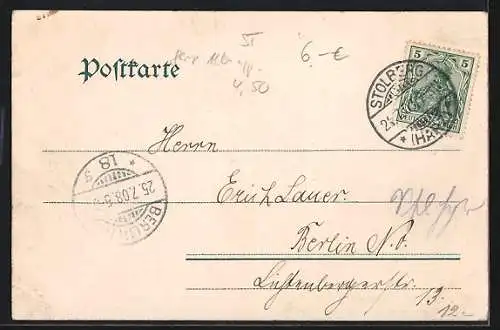 6.-€
5 5
Postkarte
4,50
STOLBERG
(HARZ)
Herrn
* 18 g
25.7.08.
BERLIN
Erich Lauer.
Berlin N.O.
Lichtenbergerstr.
13.
12.-